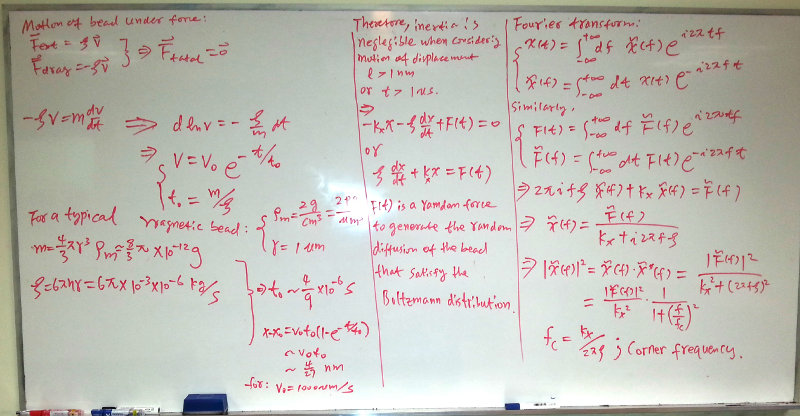 Motion of bead under force:
F⃗ext = ξ v⃗
F⃗drag = -ξ v⃗ } ⇒ F⃗total = 0⃗
-ξv = m dv/dt ⇒ d ln v = - ξ/m dt
⇒ { v = v₀ e^(-t/t₀)
t₀ = m/ξ
For a typical magnetic bead: { ρm = 2g/cm³ = 2pg/μm³
r = 1 μm
m = 4/3 πr³ ρm ≈ 8/3 π × 10⁻¹² g
ξ = 6πηr = 6π × 10⁻³ × 10⁻⁶ kg/s
} ⇒ t₀ ~ 4/9 × 10⁻⁶ s
x-x₀ = v₀t₀(1-e^(-t/t₀))
~ v₀t₀
~ 4/27 nm
for: v₀ =
Therefore, inertia is
neglegible when considering
motion of displacement
l > 1 nm
or t > 1 us.
⇒
-kₓx - ξ dx/dt + F(t) = 0
or
ξ dx/dt + kₓx = F(t)
F(t) is a random force
to generate the random
diffusion of the bead
that satisfy the
Boltzmann distribution.
Fourier transform:
{ x(t) = ∫₋∞^+∞ df x̃(f) e^(i2πft)
x̃(f) = ∫₋∞^+∞ dt x(t) e^(-i2πft)
Similarly,
{ F(t) = ∫₋∞^+∞ df F̃(f) e^(i2πft)
F̃(f) = ∫₋∞^+∞ dt F(t) e^(-i2πft)
⇒ 2πifξ x̃(f) + kₓ x̃(f) = F̃(f)
⇒ x̃(f) = F̃(f)/(kₓ + i2πfξ)
⇒ |x̃(f)|² = x̃(f)·x̃*(f) = |F̃(f)|²/(kₓ² + (2πfξ)²)
= |F̃(f)|²/kₓ² · 1/(1+(f/fc)²)
fc = kₓ/2πξ ; Corner frequency.